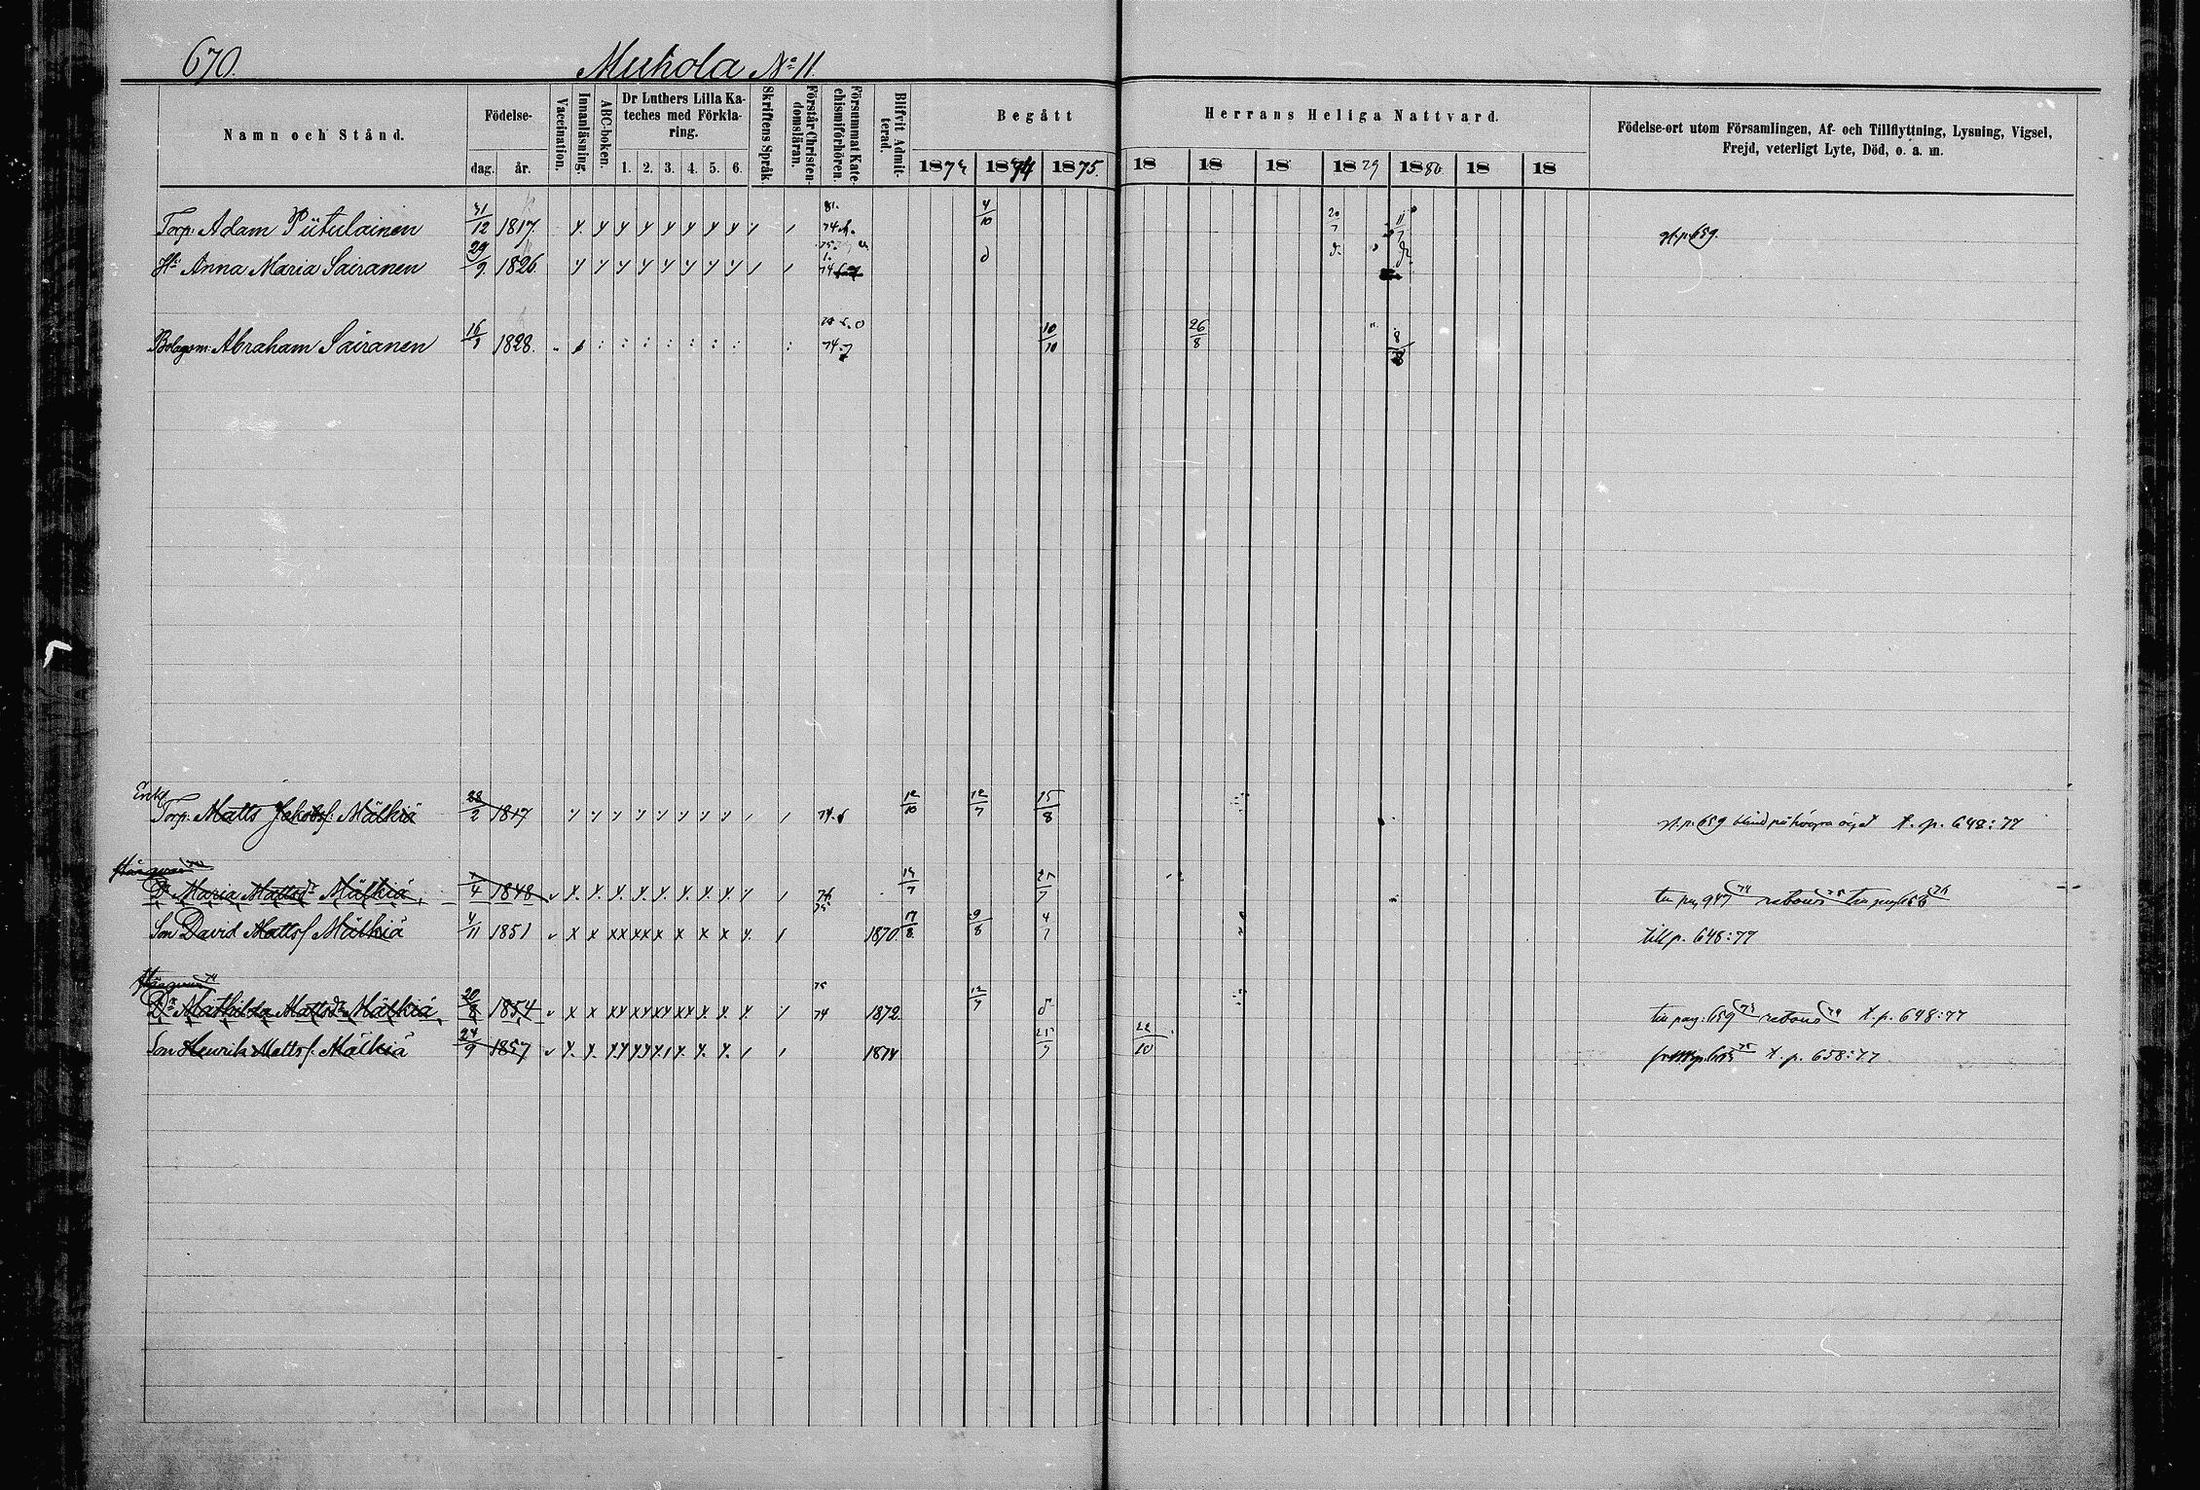 670. Muhola No 11.
Namn och Stånd.
Födelse-
dag. år.
Vaccination.
Innanläsning.
ABC-boken.
Dr Luthers Lilla Ka-
teches med Förkla-
ring.
1. 2. 3. 4. 5. 6.
Skriftens Språk.
Förstår Christen-
domsläran.
Försummat Kate-
chismiförhören.
Blifvit Admit-
terad.
Begått Herrans Heliga Nattvard.
1873 1874 1875. 18 18 18 1879 1880 18 18
Födelse-ort utom Församlingen, Af- och Tillflyttning, Lysning, Vigsel,
Frejd, veterligt Lyte, Död, o. a. m.
Torp: Adam Piitulainen 31/12 1817. 81. 74 4/10 20/7 11/7 p. 659.
Hu Anna Maria Sairanen 29/9 1826. 74 d
Abraham Sairanen 16/1 1828. 74. 10/10 26/8 8/8
Enkl.
Torp. Matts Jakobsf. Mälkiä 22/2 1817 74. 12/10 12/7 15/8 p. 659 blind på högra ögat t. p. 648:77
Dr Maria Mattsdr Mälkiä 1/4 1848 75 25/7 till pag 947 74 retour 75
Son David Mattsf Mälkiä 4/11 1851 1870. 17/8 9/8 4/7 till p. 648:77
Dr Mathilda Mattsdr Mälkiä 20/8 1854 75 74 1872. 12/7 d till pag: 659 retour 74 t. p. 648:77
Son Henrik Mattsf. Mälkiä 24/9 1857 1874 25/7 22/10 t. p. 658:77